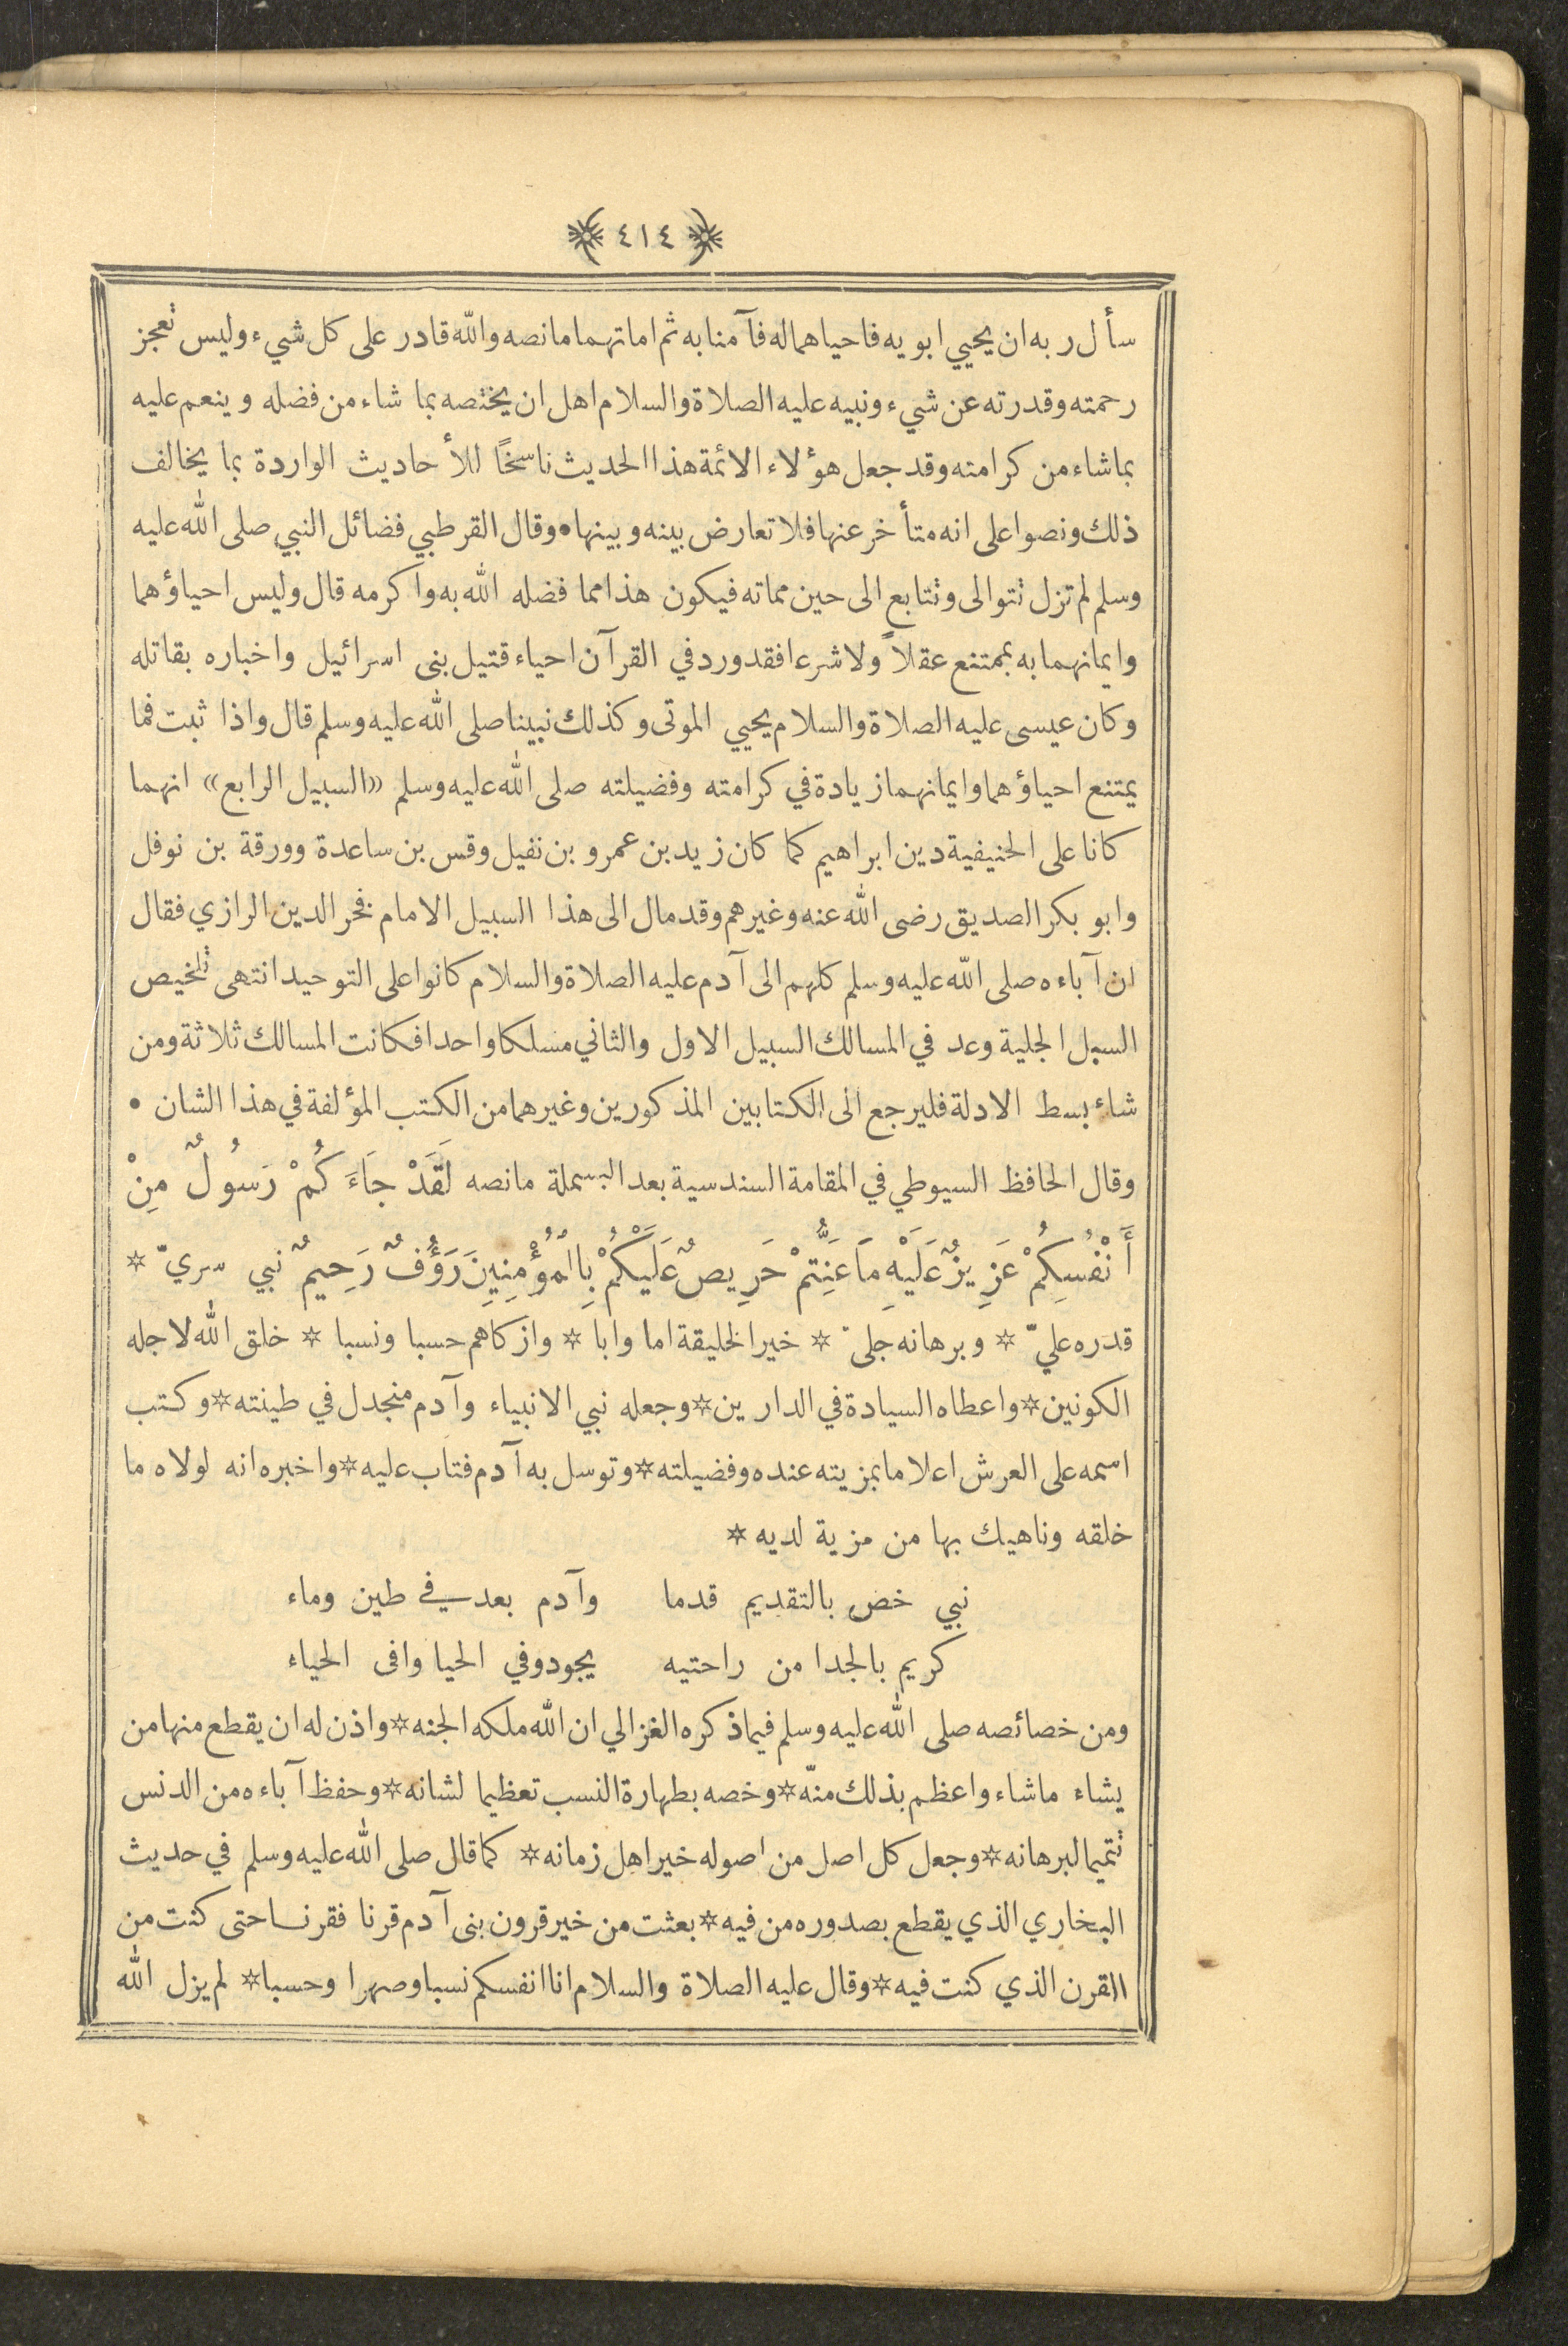 ٤١٤
سأل ربه ان يحيي ابويه فاحياهما له فآمنا به ثم اماتهما ما نصه والله قادر على كل شيء وليس تعجز
رحمته وقدرته عن شيء ونبيه عليه الصلاة والسلام اهل ان يختصه بما شاء من فضله وينعم عليه
بما شاء من كرامته وقد جعل هؤلاء الائمة هذا الحديث ناسخًا للأحاديث الواردة بما يخالف
ذلك ونصوا على انه متأخر عنها فلا تعارض بينه وبينها • وقال القرطبي فضائل النبي صلى الله عليه
وسلم لم تزل تتوالى وتتابع الى حين مماته فيكون هذا مما فضله الله به واكرمه قال وليس احياؤهما
وايمانهما به بممتنع عقلاً ولا شرعا فقد ورد في القرآن احياء قتيل بنى اسرائيل واخباره بقاتله
وكان عيسى عليه الصلاة والسلام يحيي الموتى وكذلك نبينا صلى الله عليه وسلم قال واذا ثبت فما
يمتنع احياؤهما وايمانهما زيادة في كرامته وفضيلته صلى الله عليه وسلم «السبيل الرابع» انهما
كانا على الحنيفية دين ابراهيم كما كان زيد بن عمرو بن نفيل وقس بن ساعدة وورقة بن نوفل
وابو بكر الصديق رضى الله عنه وغيرهم وقد مال الى هذا السبيل الامام فخر الدين الرازي فقال
ان آباءه صلى الله عليه وسلم كلهم الى آدم عليه الصلاة والسلام كانوا على التوحيد انتهى تلخيص
السبل الجلية وعد في المسالك السبيل الاول والثاني مسلكا واحدا فكانت المسالك ثلاثة ومن
شاء بسط الادلة فليرجع الى الكتابين المذكورين وغيرهما من الكتب المؤلفة في هذا الشان •
وقال الحافظ السيوطي في المقامة السندسية بعد البسملة ما نصه لَقَدْ جَاءَكُمْ رَسُولٌ مِنْ
أَنْفُسِكُمْ عَزِيزٌ عَلَيْهِ مَا عَنِتُّمْ حَرِيصٌ عَلَيْكُمْ بِالْمُؤْمِنِينَ رَؤُفٌ رَحِيمٌ نبي سريّ *
قدره عليّ * وبرهانه جلى * خير الخليقة اما وابا * وازكاهم حسبا ونسبا * خلق الله لاجله
الكونين * واعطاه السيادة في الدارين * وجعله نبي الانبياء وآدم منجدل في طينته * وكتب
اسمه على العرش اعلاما بمزيته عنده وفضيلته * وتوسل به آدم فتاب عليه * واخبره انه لولاه ما
خلقه وناهيك بها من مزية لديه *
نبي خص بالتقديم قدما وآدم بعد في طين وماء
كريم بالجدا من راحتيه يجود وفي الحيا وافى الحياء
ومن خصائصه صلى الله عليه وسلم فيما ذكره الغزالي ان الله ملكه الجنه * واذن له ان يقطع منها من
يشاء ما شاء واعظم بذلك منّه * وخصه بطهارة النسب تعظيما لشانه * وحفظ آباءه من الدنس
تتميما لبرهانه * وجعل كل اصل من اصوله خير اهل زمانه * كما قال صلى الله عليه وسلم في حديث
البخاري الذي يقطع بصدوره من فيه * بعثت من خير قرون بنى آدم قرنا فقرنا حتى كنت من
القرن الذي كنت فيه * وقال عليه الصلاة والسلام انا انفسكم نسبا وصهرا وحسبا * لم يزل الله